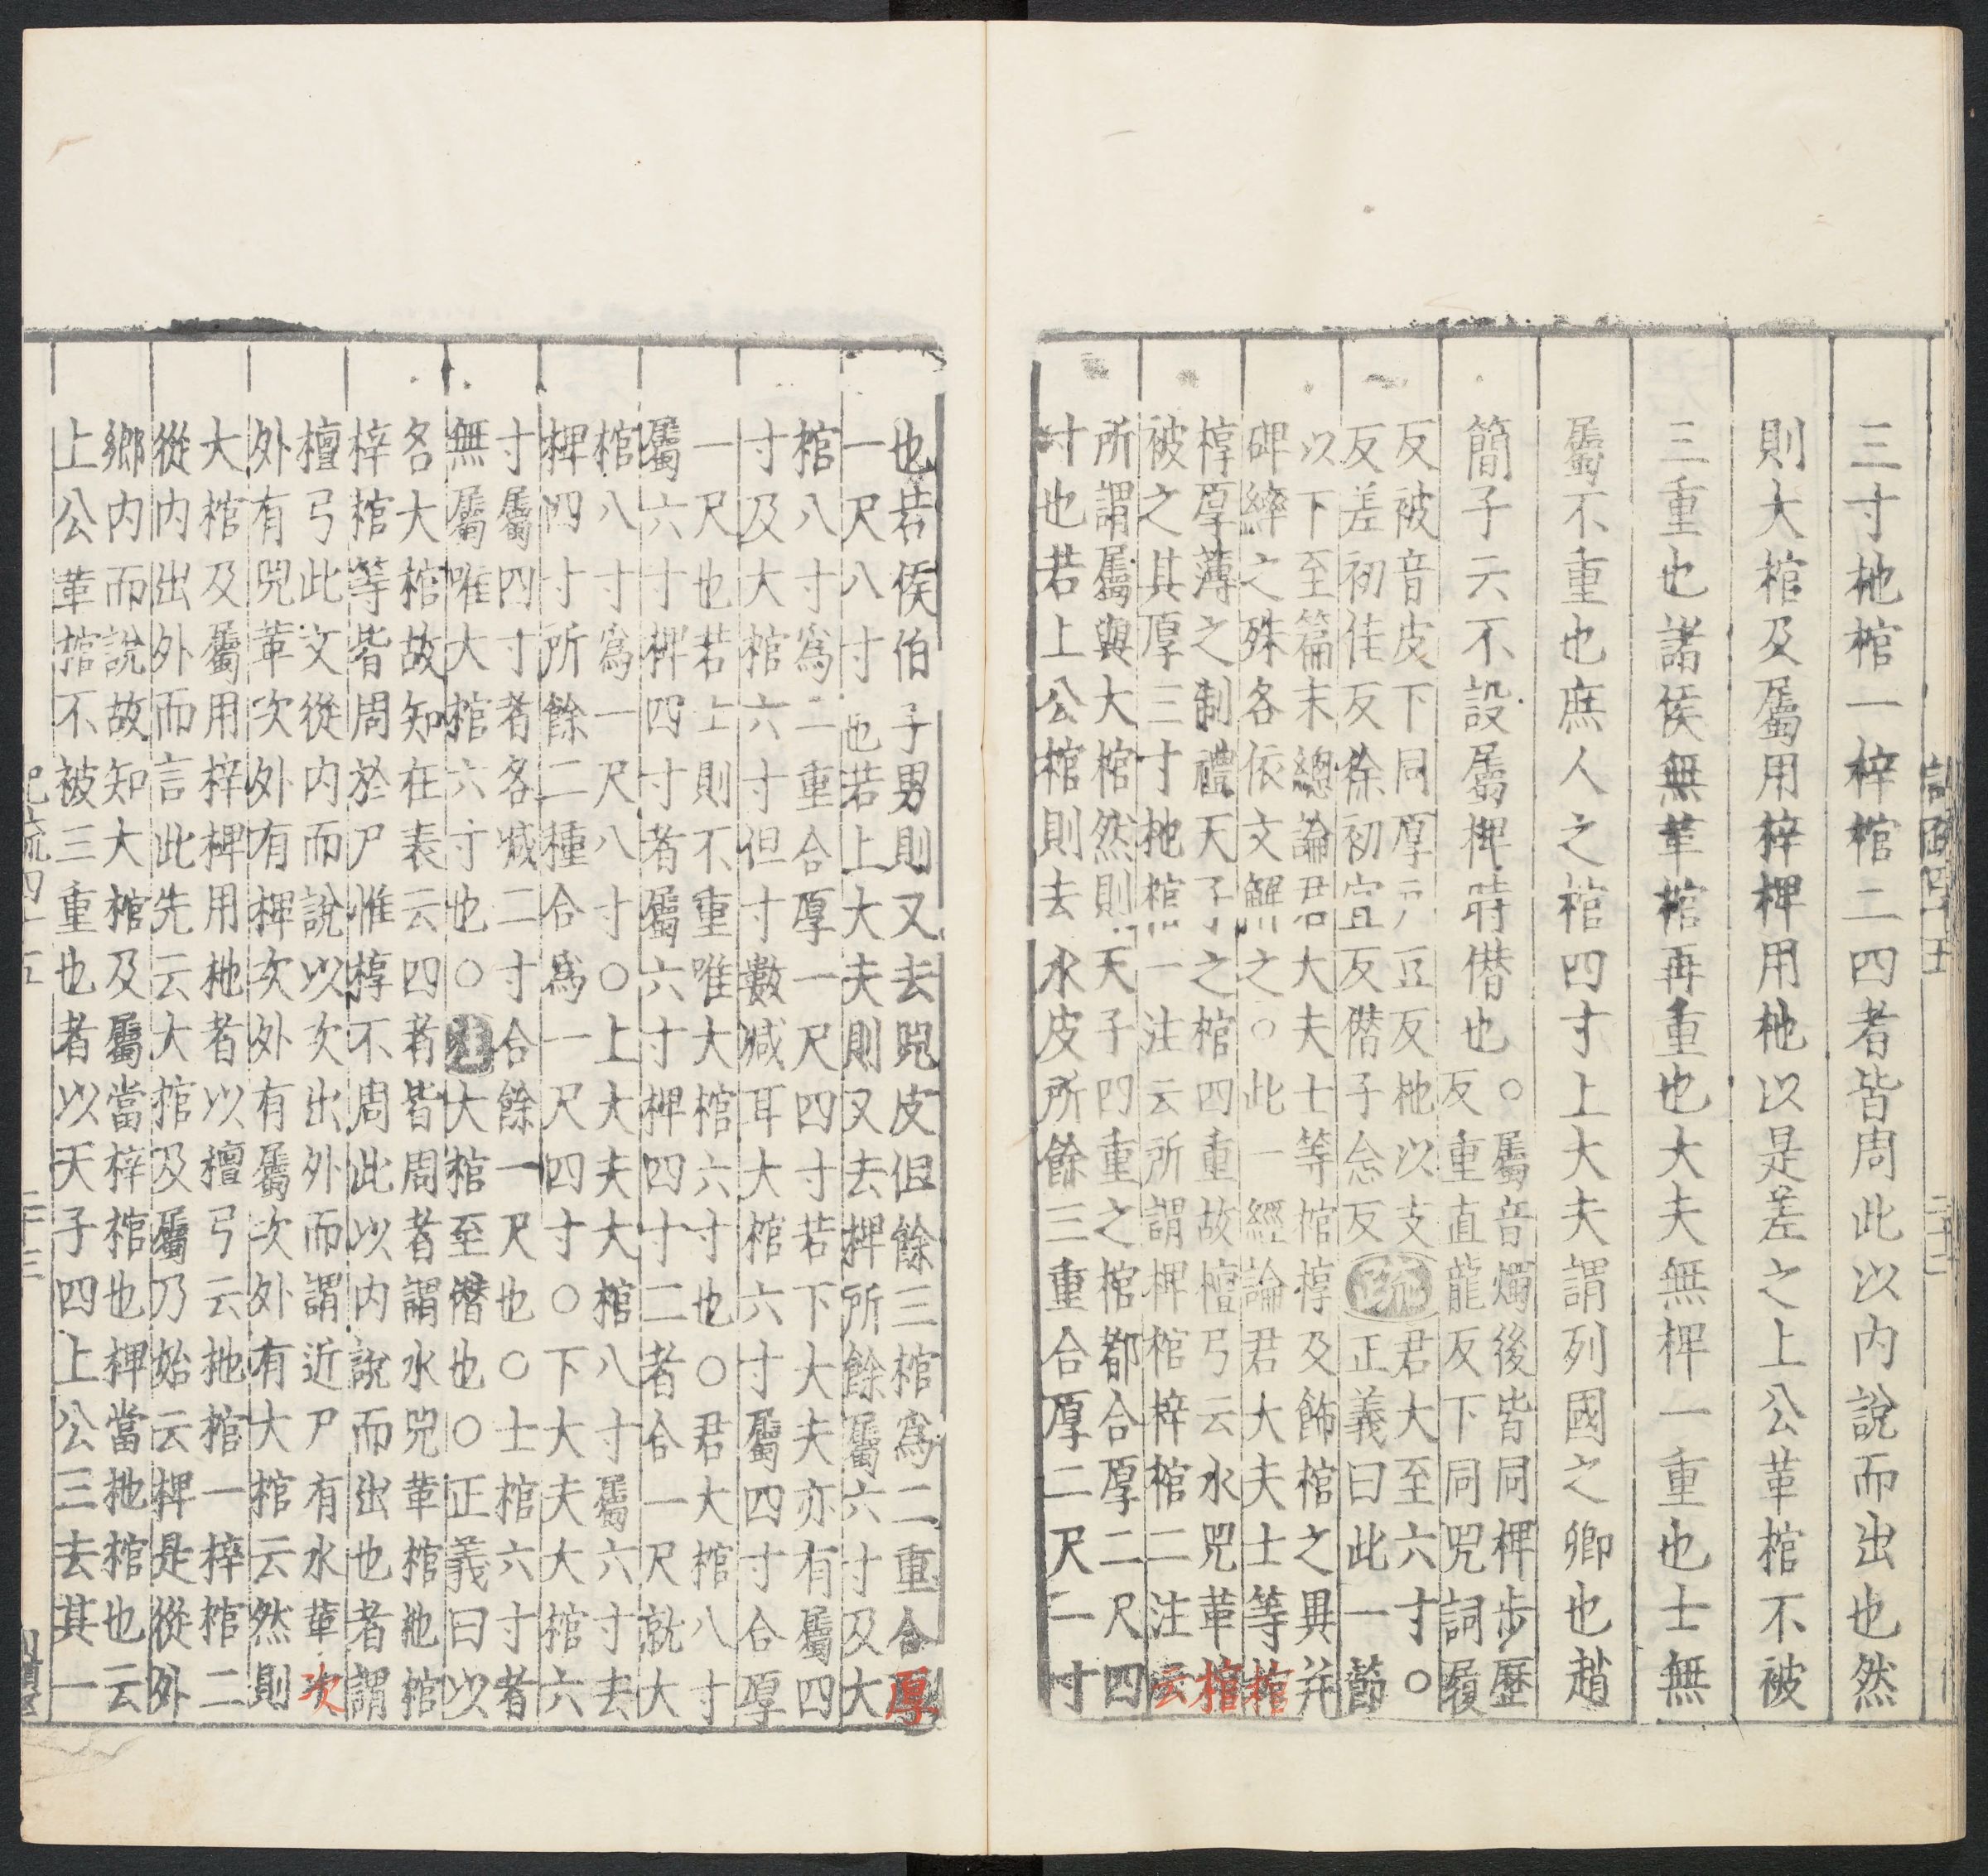 三寸杝棺一梓棺二四者皆周此以内說而出也然
則大棺及屬用梓椑用杝以是差之上公革棺不被
三重也諸侯無革棺再重也大夫無椑一重也士無
屬不重也庶人之棺四寸上大夫謂列國之卿也趙
簡子云不設屬椑時僭也○屬音燭後皆同椑步歷
反重直龍反下同兕詞履
反被音皮下同厚戶豆反杝以支
反差初佳反徐初宜反僭子念反
疏
君大至六寸○
正義曰此一節
以下至篇末總論君大夫士等棺椁及飾棺之異并
碑繂之殊各依文解之○此一經論君大夫士等棺
椁厚薄之制禮天子之棺四重故檀弓云水兕革棺
被之其厚三寸杝棺一注云所謂椑棺梓棺二注云
所謂屬與大棺然則天子四重之棺都合厚二尺四
寸也若上公棺則去水皮所餘三重合厚二尺一寸
也若侯伯子男則又去兕皮但餘三棺爲二重合厚
一尺八寸也若上大夫則又去椑所餘屬六寸及大
棺八寸爲一重合厚一尺四寸若下大夫亦有屬四
寸及大棺六寸但寸數減耳大棺六寸屬四寸合厚
一尺也若士則不重唯大棺六寸也○君大棺八寸
屬六寸椑四寸者屬六寸椑四寸二者合一尺就大
棺八寸爲一尺八寸○上大夫大棺八寸屬六寸去
椑四寸所餘二種合爲一尺四寸○下大夫大棺六
寸屬四寸者各減二寸合餘一尺也○士棺六寸者
無屬唯大棺六寸也○注大棺至僭也○正義曰以
各大棺故知在表云四者皆周者謂水兕革棺杝棺
梓棺等皆周於尸惟椁不周此以内說而出也者謂
檀弓此文從内而說以次出外而謂近尸有水革次
外有兕革次外有椑次外有屬次外有大棺云然則
大棺及屬用梓椑用杝者以檀弓云杝棺一梓棺二
從内出外而言此先云大棺及屬乃始云椑是從外
鄉内而說故知大棺及屬當梓棺也椑當杝棺也云
上公革棺不被三重也者以天子四上公三去其一
記疏四十五
二十三